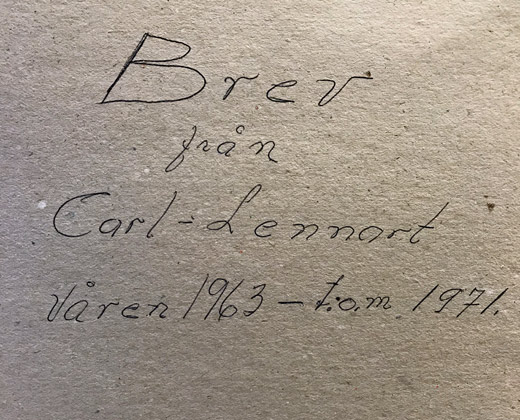 Brev
från
Carl-Lennart
Våren 1963 – t.o.m. 1971.